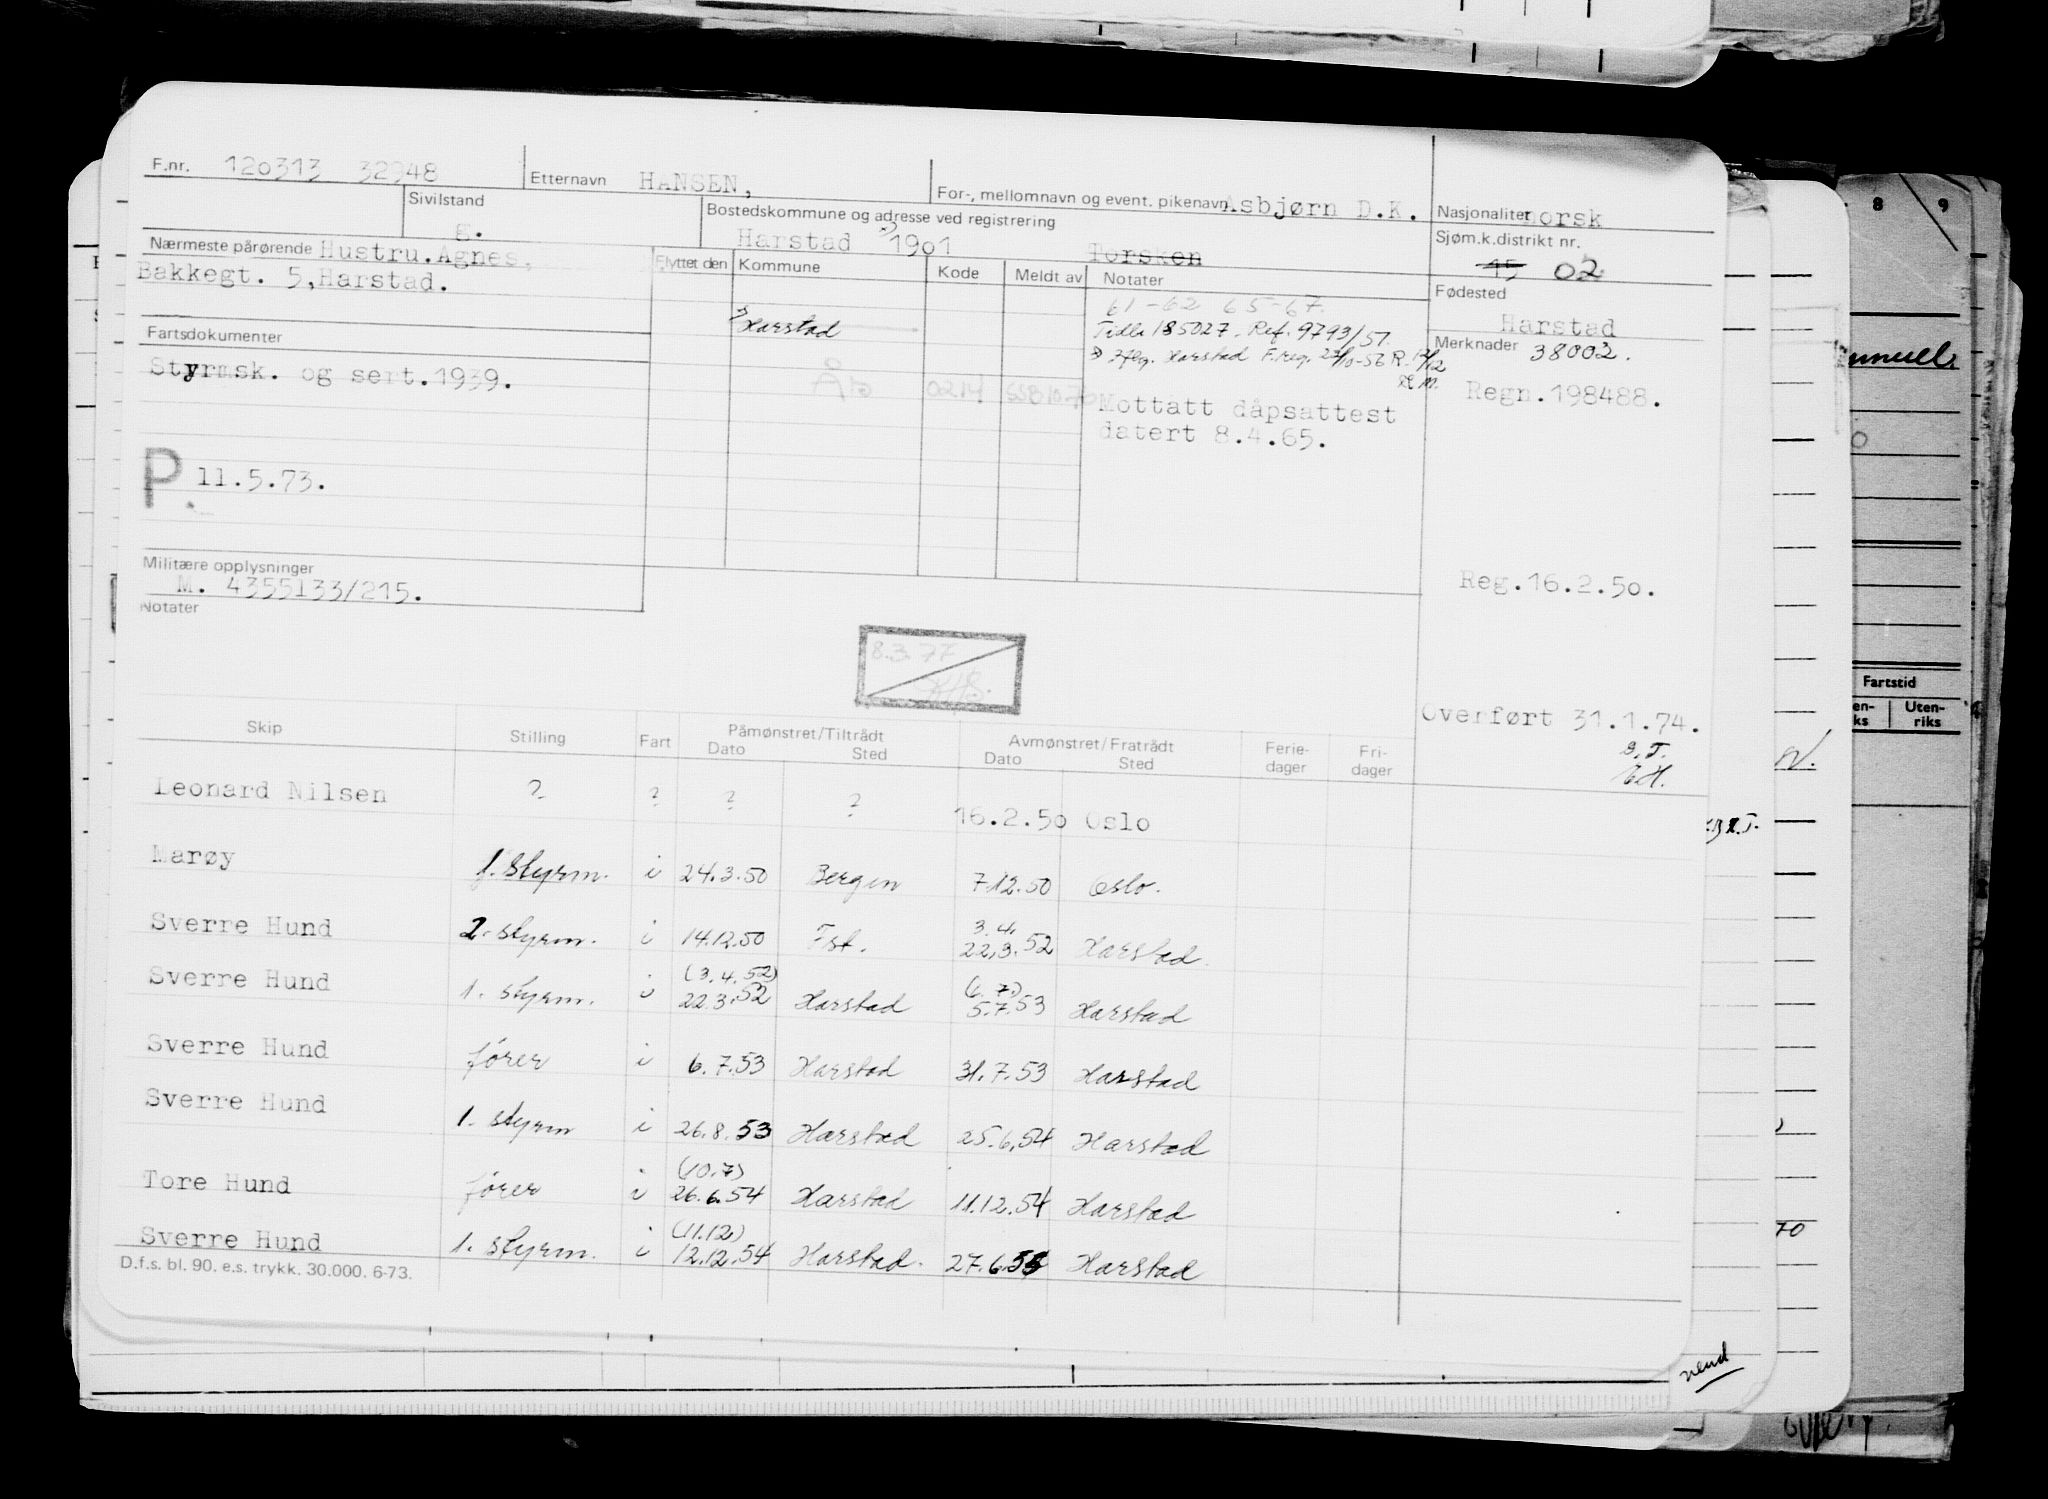 F.nr. 120313 32948 Etternavn HANSEN, For-, mellomnavn og event. pikenavn Asbjørn D.K. Nasjonalitet norsk
Sivilstand g. Bostedskommune og adresse ved registrering Harstad 1901 Torsken Sjøm.k.distrikt nr. 45 02
Nærmeste pårørende Hustru.Agnes,
Bakkegt. 5,Harstad.
Flyttet den Kommune Kode Meldt av Notater
Fødested Harstad
61-62 65-67.
Harstad
Tidl. 185027. Ref. 9793/51.
Fartsdokumenter
Merknader 38002.
Styrmsk. og sert.1939.
Harstad F.reg.
Regn.198488.
Ås 0214
Mottatt dåpsattest
datert 8.4.65.
P. 11.5.73.
Militære opplysninger
M. 4355133/215.
Reg.16.2.50.
Notater
8.3.77
Overført 31.1.74.
Skip Stilling Fart Påmønstret/Tiltrådt Dato Sted Avmønstret/Fratrådt Dato Sted Ferie-dager Fri-dager
Leonard Nilsen ? ? ? ? 16.2.50 Oslo
Marøy 1. styrm. i 24.3.50 Bergen 7.12.50 Oslo.
3.4.
Sverre Hund 2. styrm. i 14.12.50 Fst. 22.3.52 Harstad.
(3.4.52) (6.7.)
Sverre Hund 1. styrm. i 22.3.52 Harstad 5.7.53 Harstad
Sverre Hund fører i 6.7.53 Harstad 31.7.53 Harstad
Sverre Hund 1. styrm i 26.8.53 Harstad 25.6.54 Harstad
(10.7)
Tore Hund fører i 26.6.54 Harstad 11.12.54 Harstad
(11.12)
Sverre Hund 1. styrm. i 12.12.54 Harstad. 27.6.55 Harstad
D.f.s. bl. 90. e.s. trykk. 30.000. 6-73.
8 9
Fartstid
Uten-
riks
70
vend